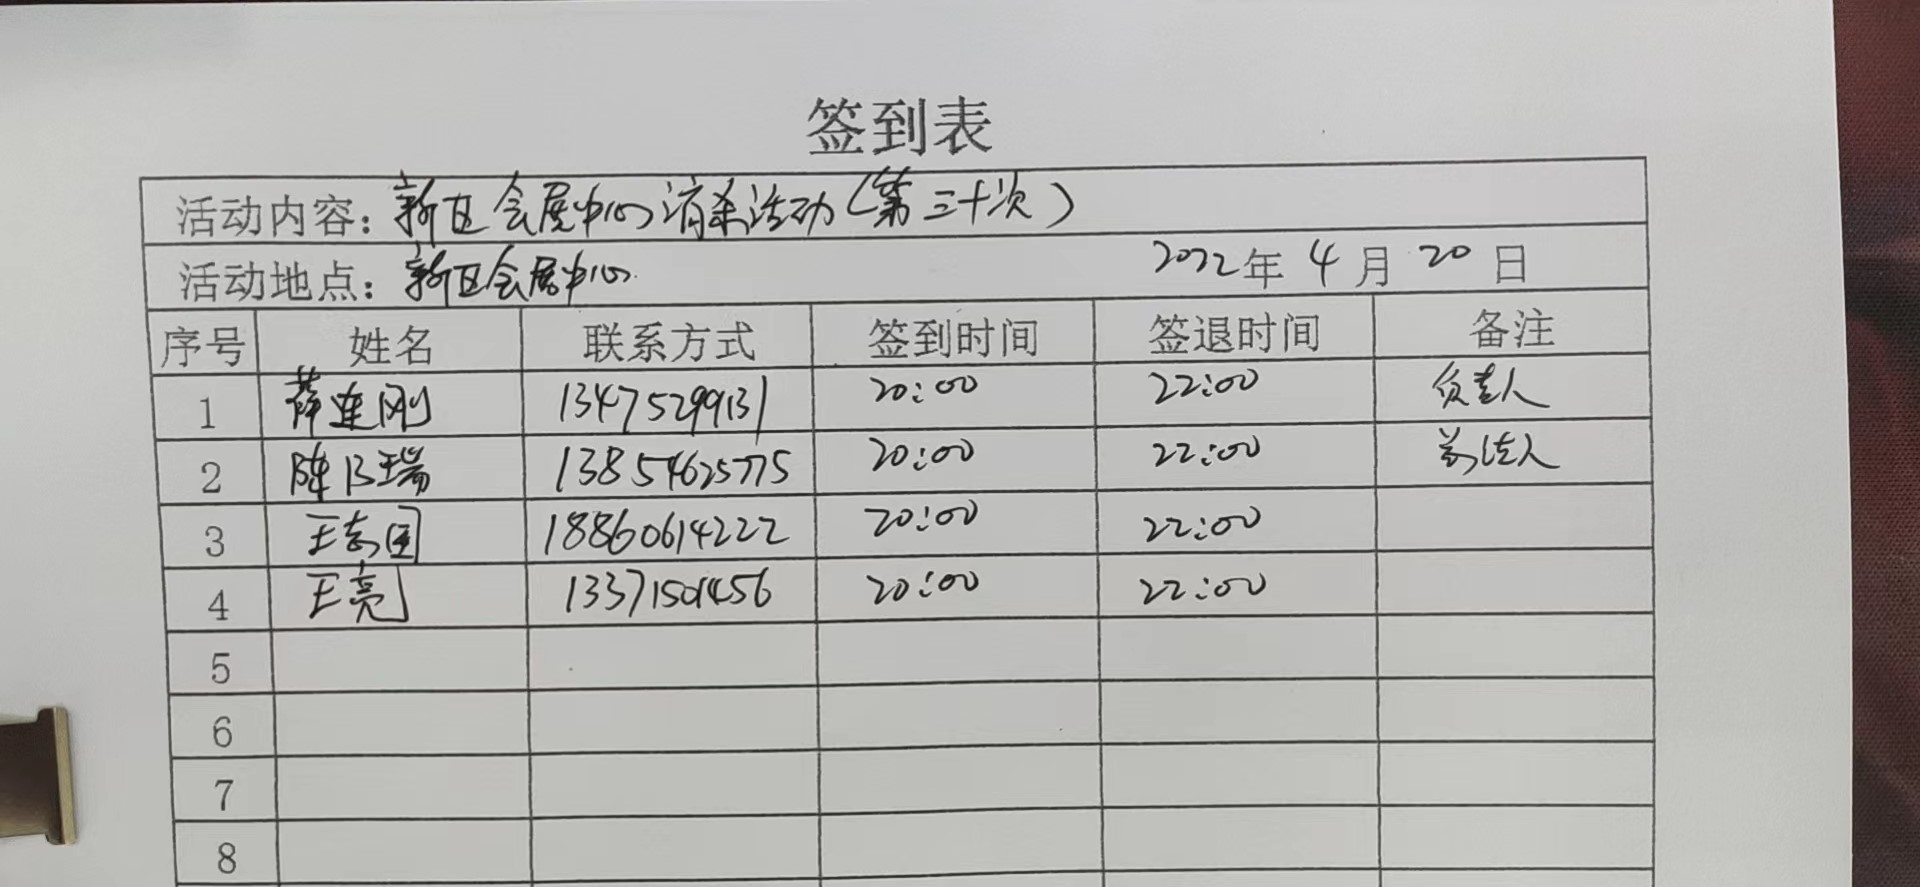 签到表
活动内容：新区会展中心消杀活动（第三十次）
活动地点：新区会展中心 2022年4月20日
序号 姓名 联系方式 签到时间 签退时间 备注
1 薛连刚 13475299131 20:00 22:00 负责人
2 陈 瑞 13854625775 20:00 22:00
3 王志国 18860614222 20:00 22:00
4 王亮 13371501456 20:00 22:00
5
6
7
8